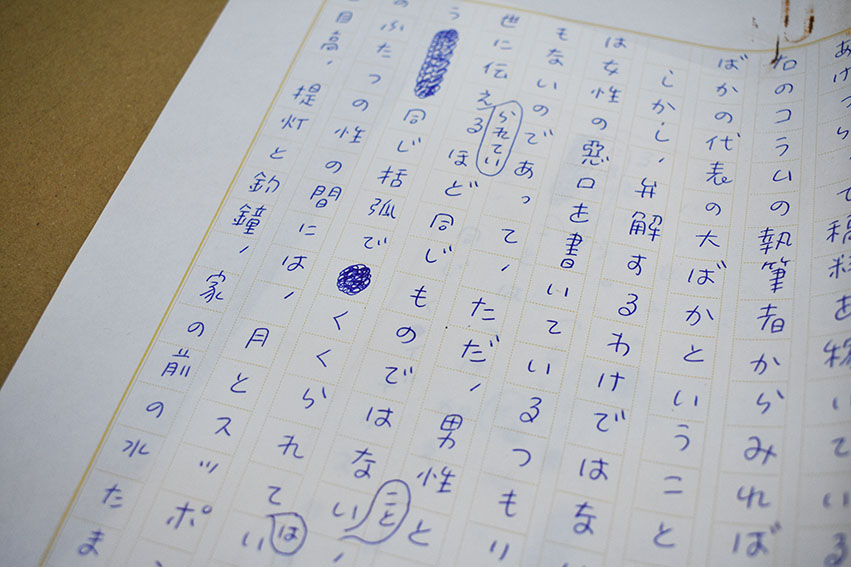 あげつらって稿料を
のコラムの執筆者からみれば
ばかの代表の大ばかということ
しかし、弁解するわけではな
は女性の悪口を書いているつもり
もないのであって、ただ、男性と
世に伝えられているほど同じものではないこと、
う同じ括弧でくくられてはい
のふたつの性の間には、月とスッポ
目高、提灯と釣鐘、家の前の水たま